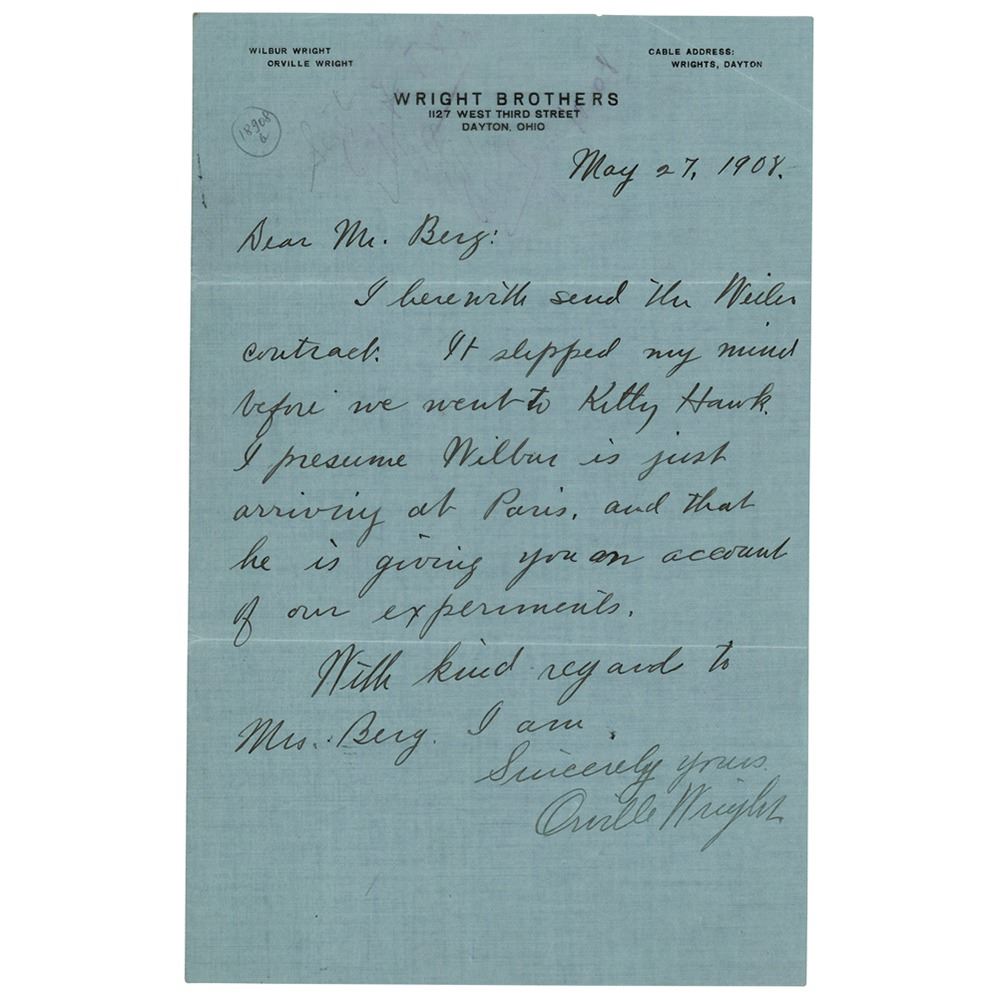 WILBUR WRIGHT
ORVILLE WRIGHT
CABLE ADDRESS:
WRIGHTS, DAYTON
WRIGHT BROTHERS
1127 WEST THIRD STREET
DAYTON, OHIO
18908
May 27, 1908.
Dear Mr. Berg:
I herewith send the Weiler
contract. It slipped my mind
before we went to Kitty Hawk.
I presume Wilbur is just
arriving at Paris, and that
he is giving you an account
of our experiments.
With kind regard to
Mrs. Berg. I am,
Sincerely yours.
Orville Wright.